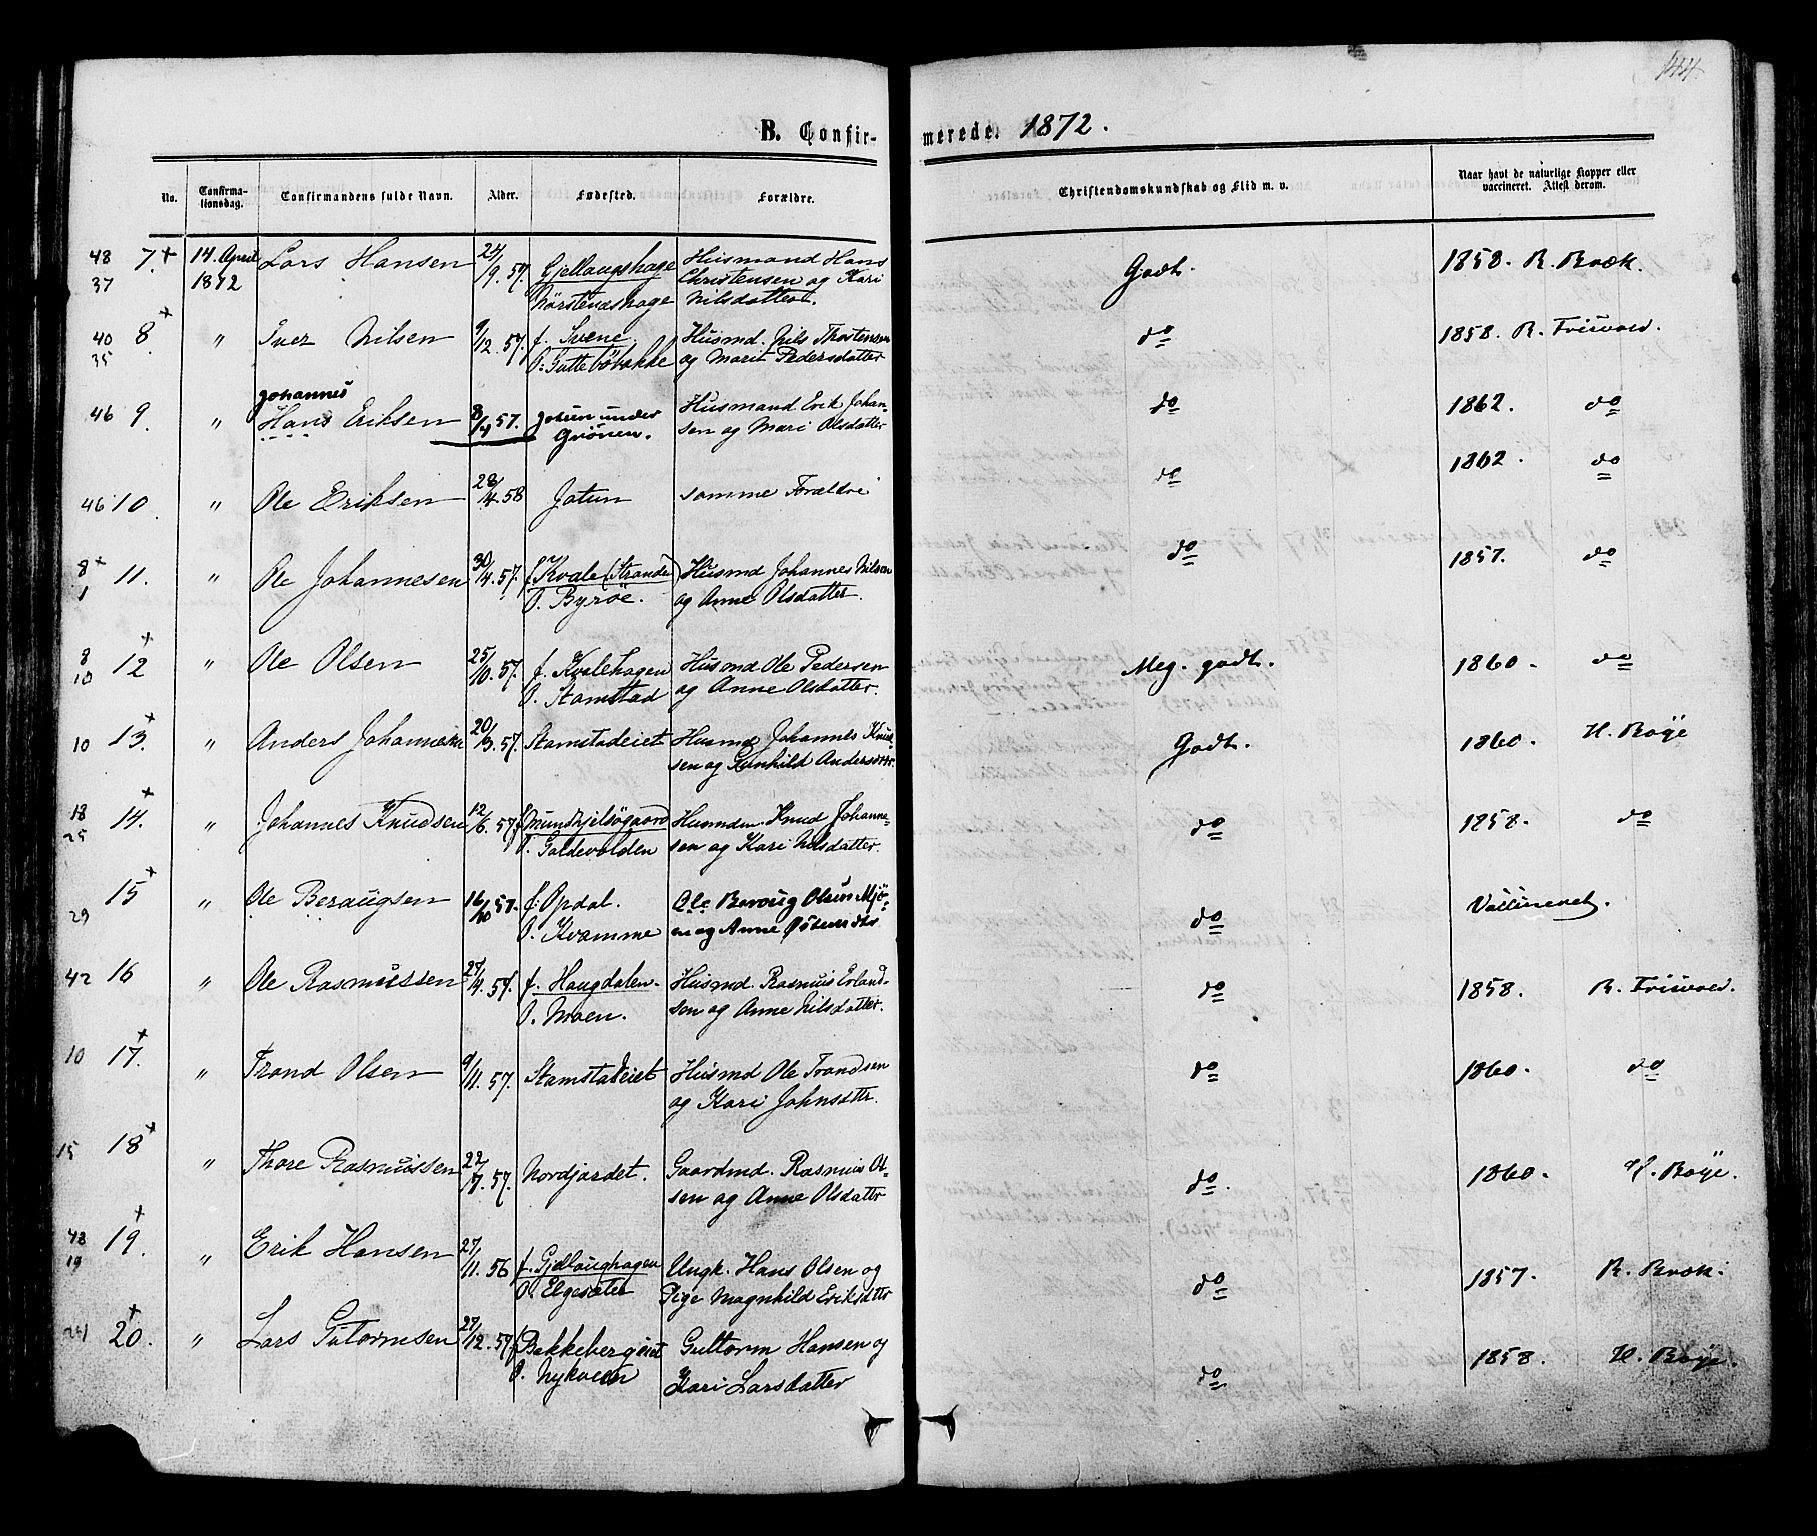 144
B. Confir-
merede. 1872.
No. Confirma-tionsdag. Confirmandens fulde Navn. Alder. Fødested. Forældre. Christendomskundskab og Flid m. v. Naar havt de naturlige Kopper eller vaccineret. Attest derom.
48 7. + 14. April Lars Hansen 24/9. 57. Gjellaugshage Husmand Hans Godt. 1858. R. Bræk.
37 1872 Nørstenæshage Christensen og Kari
Nilsdatter.
40 8 + " Iver Nilsen 9/12. 57. f. Svene. Husmd. Nils Thostensen do 1858. R. Frisvold.
35 O. Guttebøbakke og Marit Pedersdatter
Johannes
46 9. " Hans Eriksen 8/4 57. Jotun under Husmand Erik Johan- do 1862. do
Grönen. sen og Mari Olsdatter
46 10. " Ole Eriksen 28/4. 58 Jotun samme Forældre do 1862. do
8 + 11. " Ole Johannesen 30/4. 57. f. Kvale (Strande) Husmd Johannes Nilsen do 1857. do
1 O. Byrøe. og Anne Olsdatter.
8 12 + " Ole Olsen 25/10. 57. f. Kvalehagen Husmd Ole Pedersen Meg. godt. 1860. do
10 O. Stamstad og Anne Olsdatter.
10 13. + " Anders Johannesen 20/3. 57. Stamstadeiet Husmd Johannes Knud- Godt. 1860. H. Bøye
sen og Gunhild Andersdtr.
18 14. + " Johannes Knudsen 12/6. 57. f. Munskjelsøgaard Husmdm. Knud Johanne- do 1858. do
25 O. Galdevolden sen og Kari Nilsdatter.
15 + " Ole Beraugsen 16/10 57. f. Opdal. Ole Baroug Olsen Mjö- do Vaccineret.
29 O. Kvamme en og Anne
42 16 " Ole Rasmussen 27/4. 57. f. Haugdalen. Husmd. Rasmus Erland- do 1858. R. Frisvold.
O. Moen. sen og Anne Nilsdatter.
10 17. + " Trond Olsen 9/11. 57. Stamstadeiet Husmd Ole Trondsen do 1860. do
og Kari Johnsdtr.
15 18 + " Thore Rasmussen 22/7. 57. Nordjordet. Gaardmd. Rasmus Ol- do. 1860. H. Bøye.
sen og Anne Olsdatter
48 19. + " Erik Hansen 27/11. 56 f. Gjellaughagen Ungk. Hans Olsen og do 1857. R. Bræk.
19 O. Elgesæter Pige Magnhild Eriksdtr
20. + " Lars Gutormsen 27/12. 57. f. Bakkebergeiet Guttorm Hansen og do 1858. H. Bøye.
O. Nykveen Kari Larsdatter